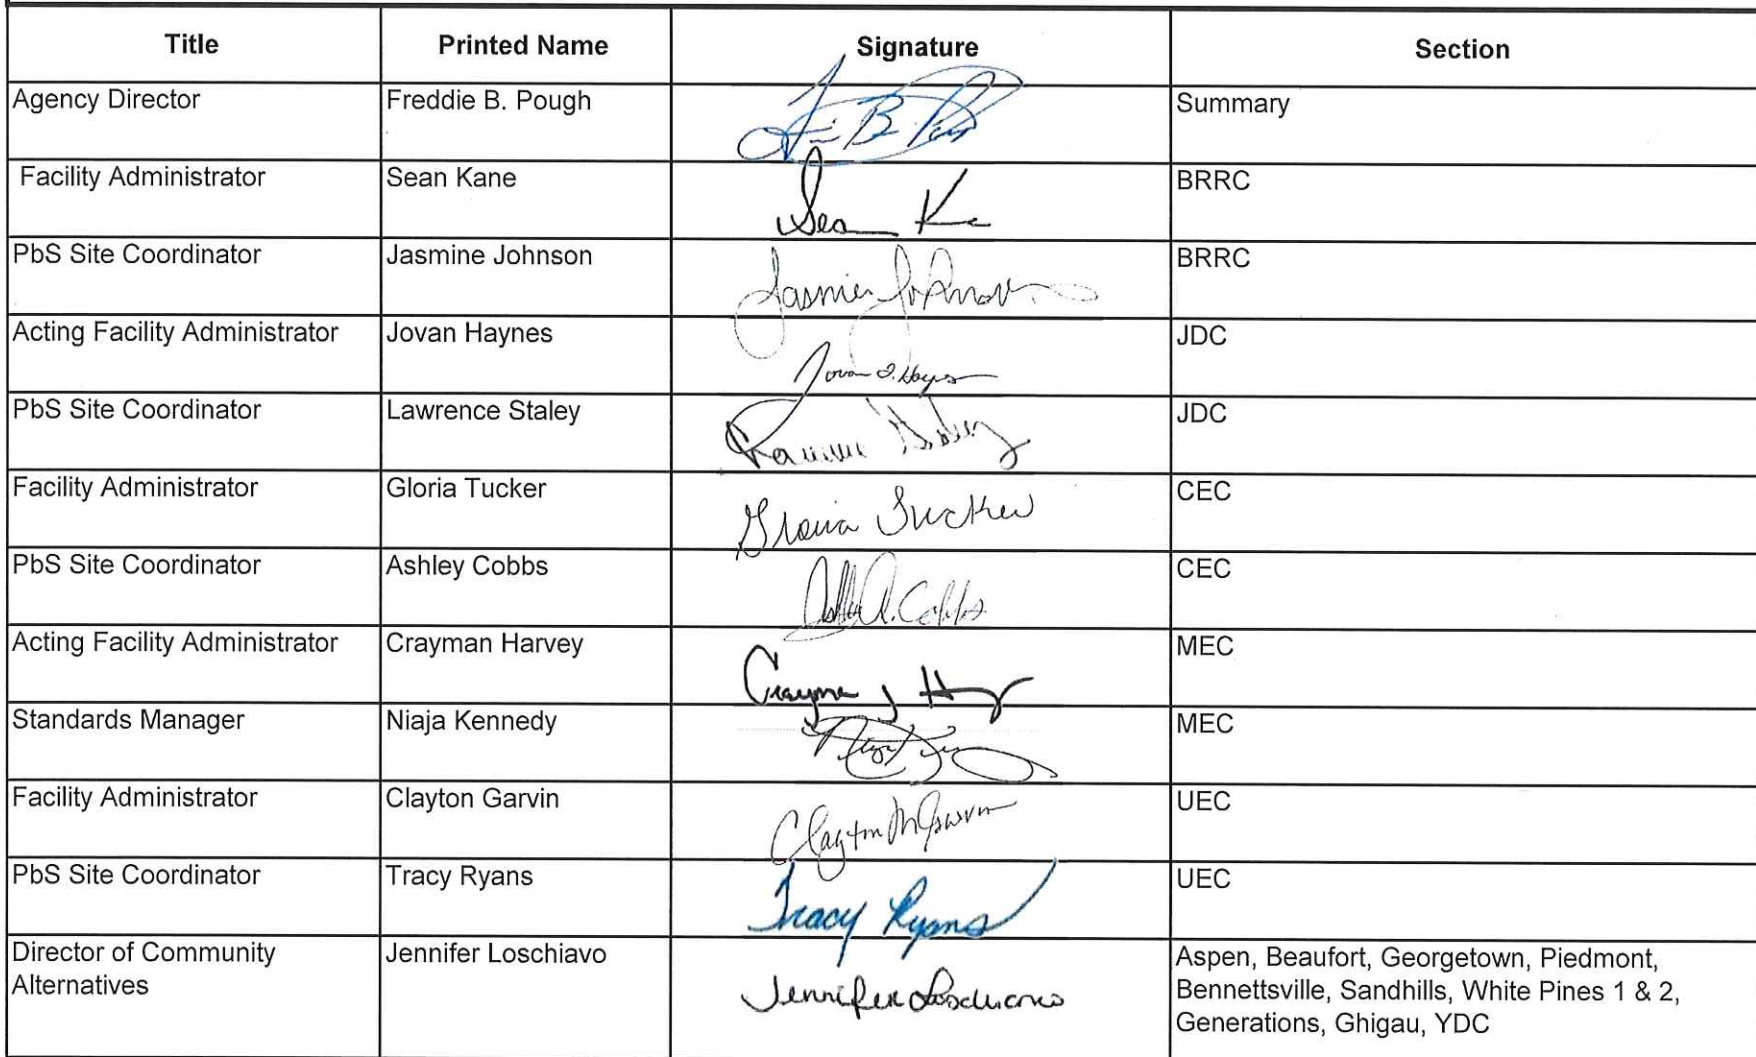 Title Printed Name Signature Section
Agency Director Freddie B. Pough Summary
Facility Administrator Sean Kane Sean K BRRC
PbS Site Coordinator Jasmine Johnson Jasmine Johnson BRRC
Acting Facility Administrator Jovan Haynes Jovan J. Haynes JDC
PbS Site Coordinator Lawrence Staley JDC
Facility Administrator Gloria Tucker Gloria Tucker CEC
PbS Site Coordinator Ashley Cobbs Ashley A. Cobbs CEC
Acting Facility Administrator Crayman Harvey Crayman J H MEC
Standards Manager Niaja Kennedy MEC
Facility Administrator Clayton Garvin Clayton M Garvin UEC
PbS Site Coordinator Tracy Ryans Tracy Ryans UEC
Director of Community Jennifer Loschiavo Jennifer Loschiavo Aspen, Beaufort, Georgetown, Piedmont,
Alternatives Bennettsville, Sandhills, White Pines 1 & 2,
Generations, Ghigau, YDC